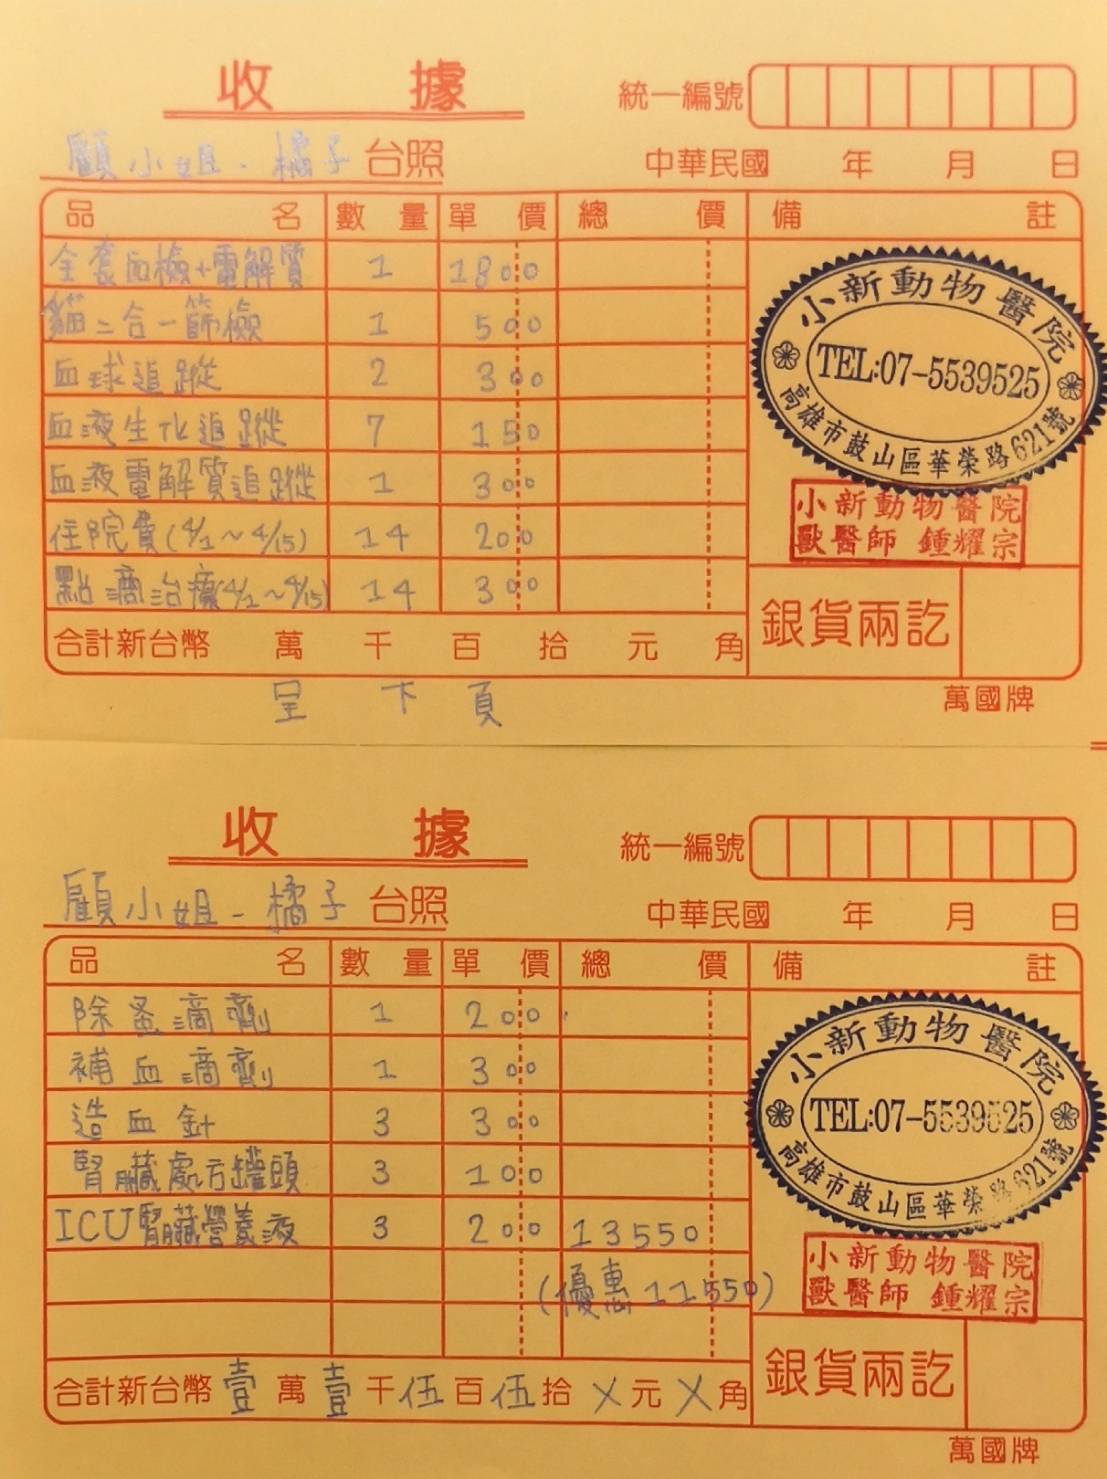 收據
統一編號
顧小姐-橘子 台照
中華民國 年 月 日
品名 數量 單價 總價 備註
全套血檢+電解質 1 1800
貓二合一篩檢 1 500
血球追蹤 2 300
血液生化追蹤 7 150
血液電解質追蹤 1 300
住院費(4/2~4/15) 14 200
點滴治療(4/2~4/15) 14 300
小新動物醫院
TEL:07-5539525
高雄市鼓山區華榮路621號
小新動物醫院
獸醫師 鍾耀宗
合計新台幣 萬 千 百 拾 元 角
銀貨兩訖
呈下頁
萬國牌
收據
統一編號
顧小姐-橘子 台照
中華民國 年 月 日
品名 數量 單價 總價 備註
除蚤滴劑 1 200
補血滴劑 1 300
造血針 3 300
腎臟處方罐頭 3 100
ICU腎臟營養液 3 200 13550
(優惠11550)
小新動物醫院
TEL:07-5539525
高雄市鼓山區華榮路621號
小新動物醫院
獸醫師 鍾耀宗
合計新台幣 壹萬壹千伍百伍拾X元X角
銀貨兩訖
萬國牌